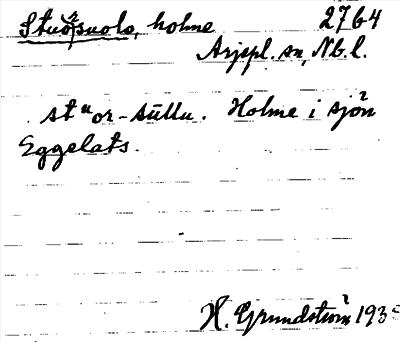 Stuorsuolo, holme 2764
Arjepl. sn, Nb. l.
stᵘor-sūllu. Holme i sjön
Eggelats.
H. Grundström 193